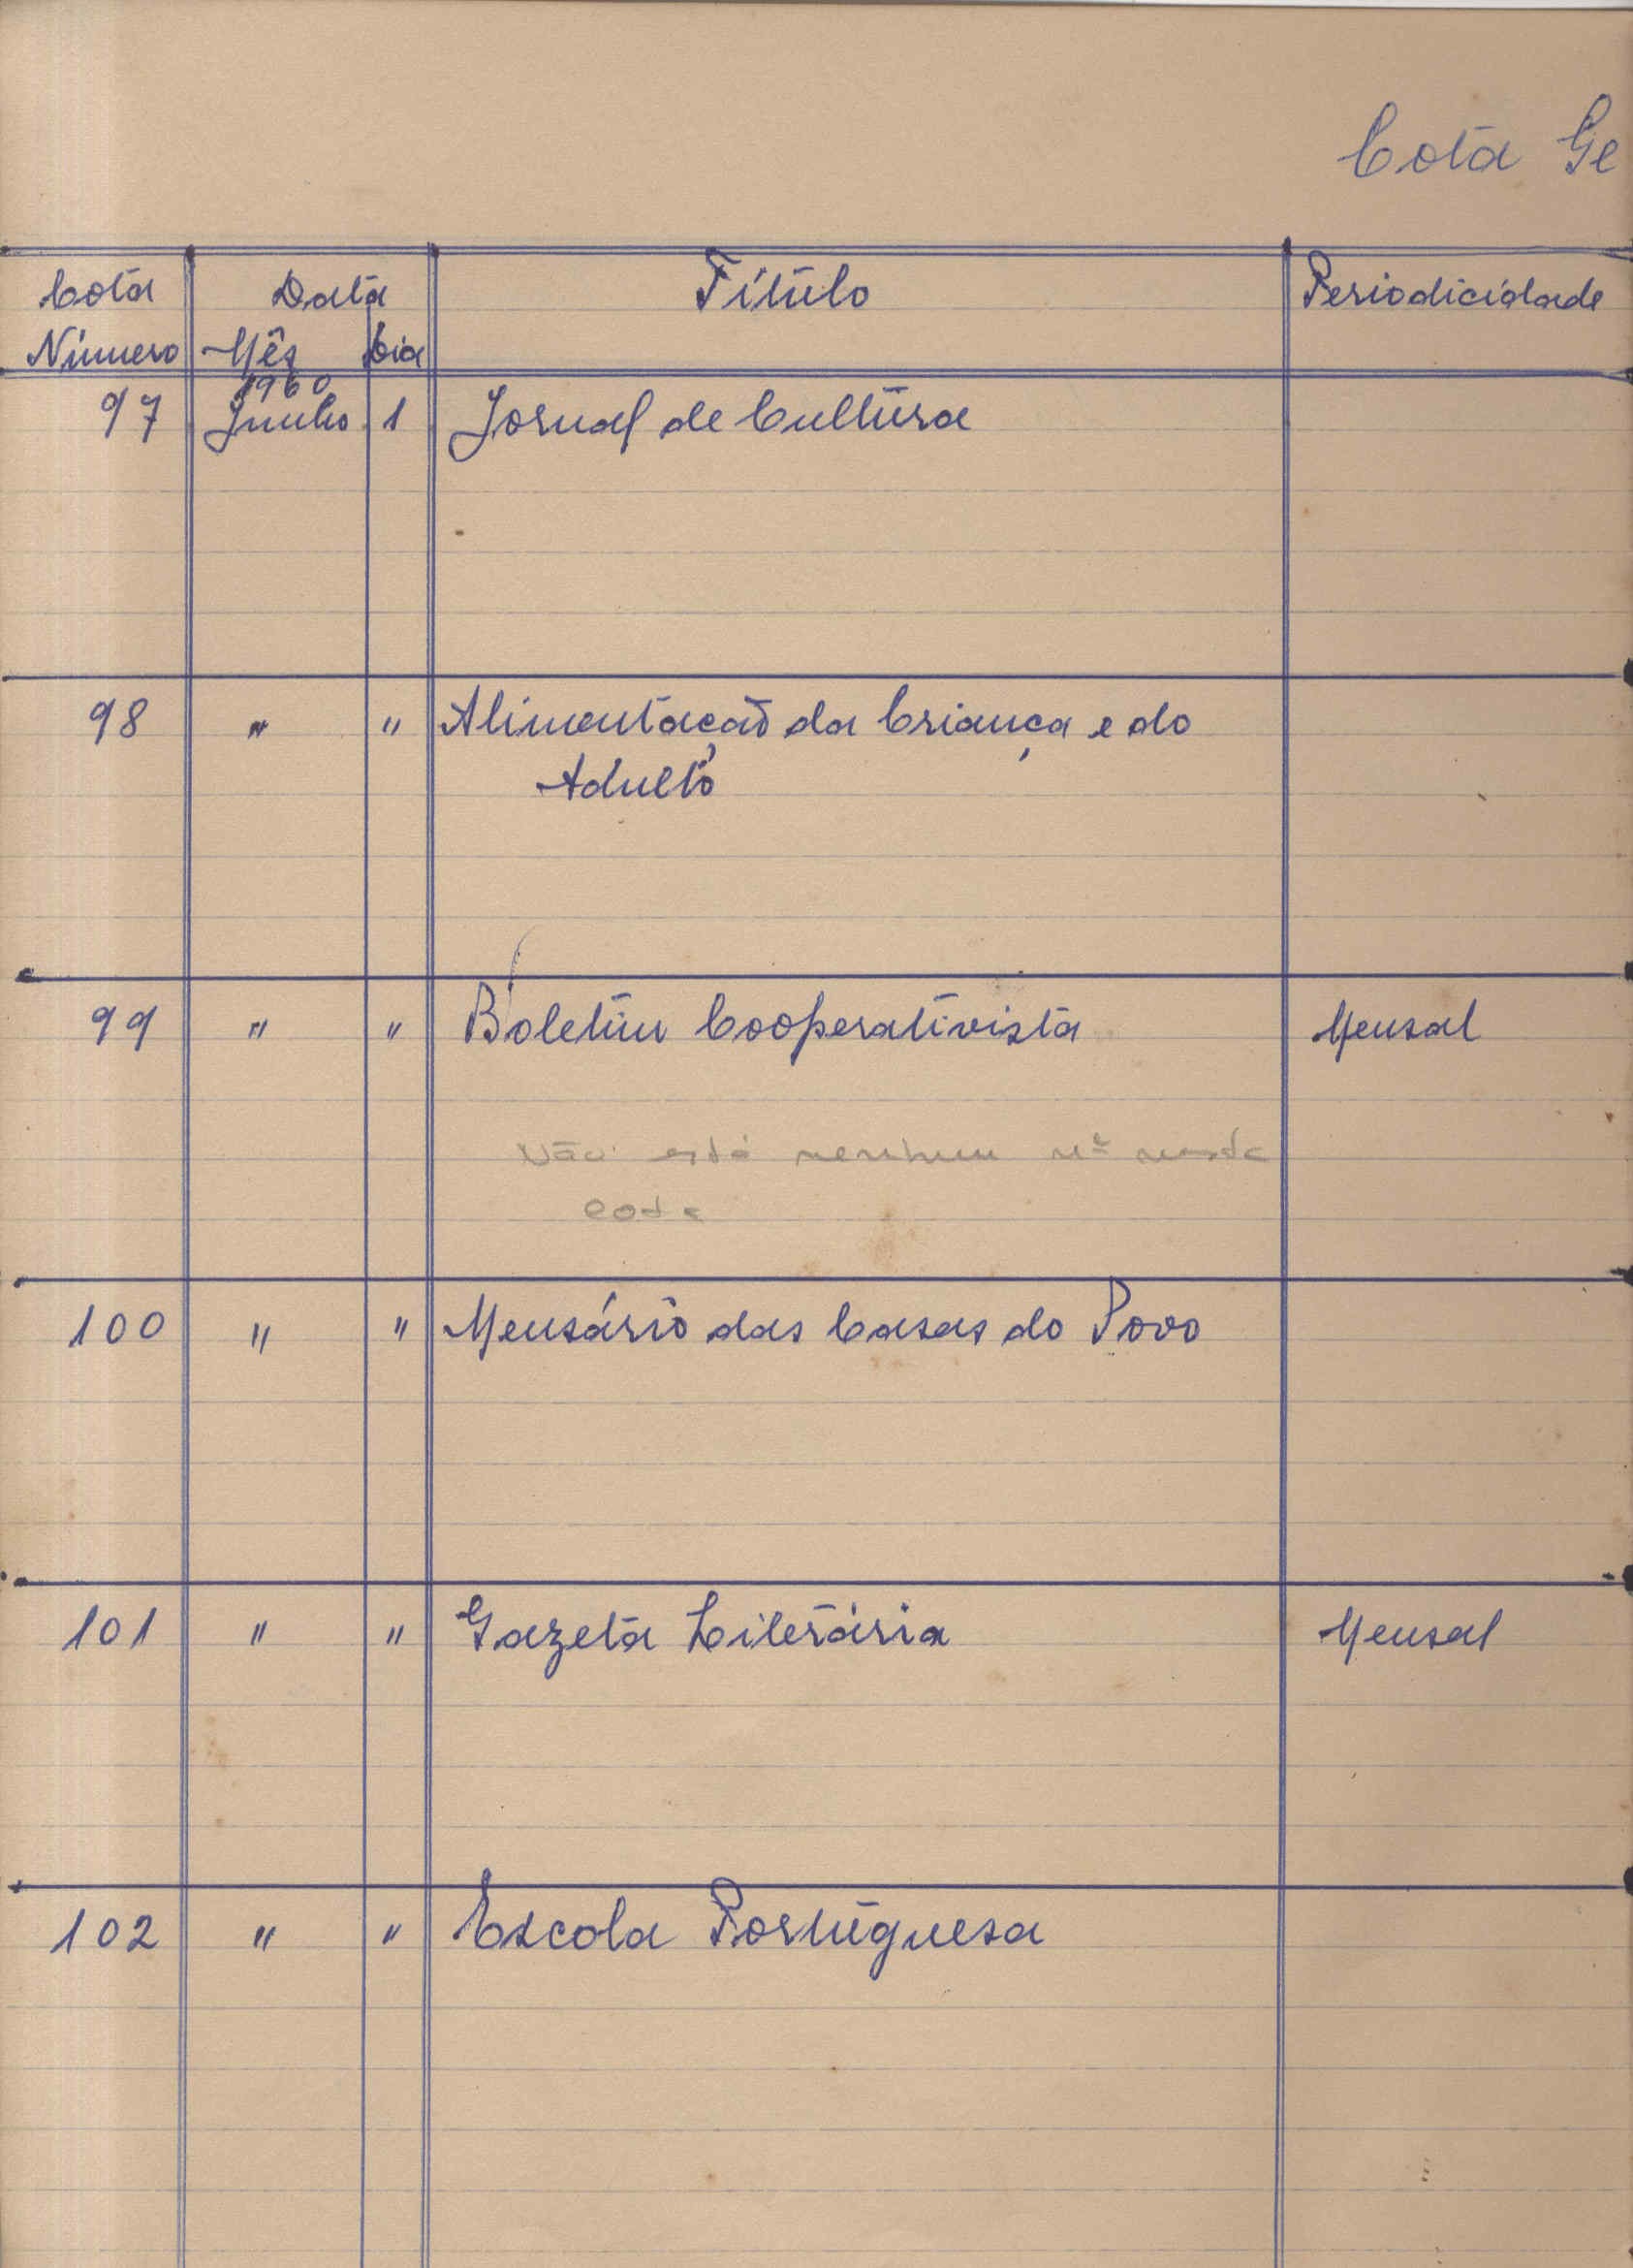 Cota Ge
Cota Data Título Periodicidade
Número Mês Dia
1960
97 Junho 1 Jornal de Cultura
98 " " Alimentação da Criança e do
Adulto
99 " " Boletim Cooperativista Mensal
Não está nenhum nº nesta
cota
100 " " Mensário das Casas do Povo
101 " " Gazeta Literária Mensal
102 " " Escola Portuguesa